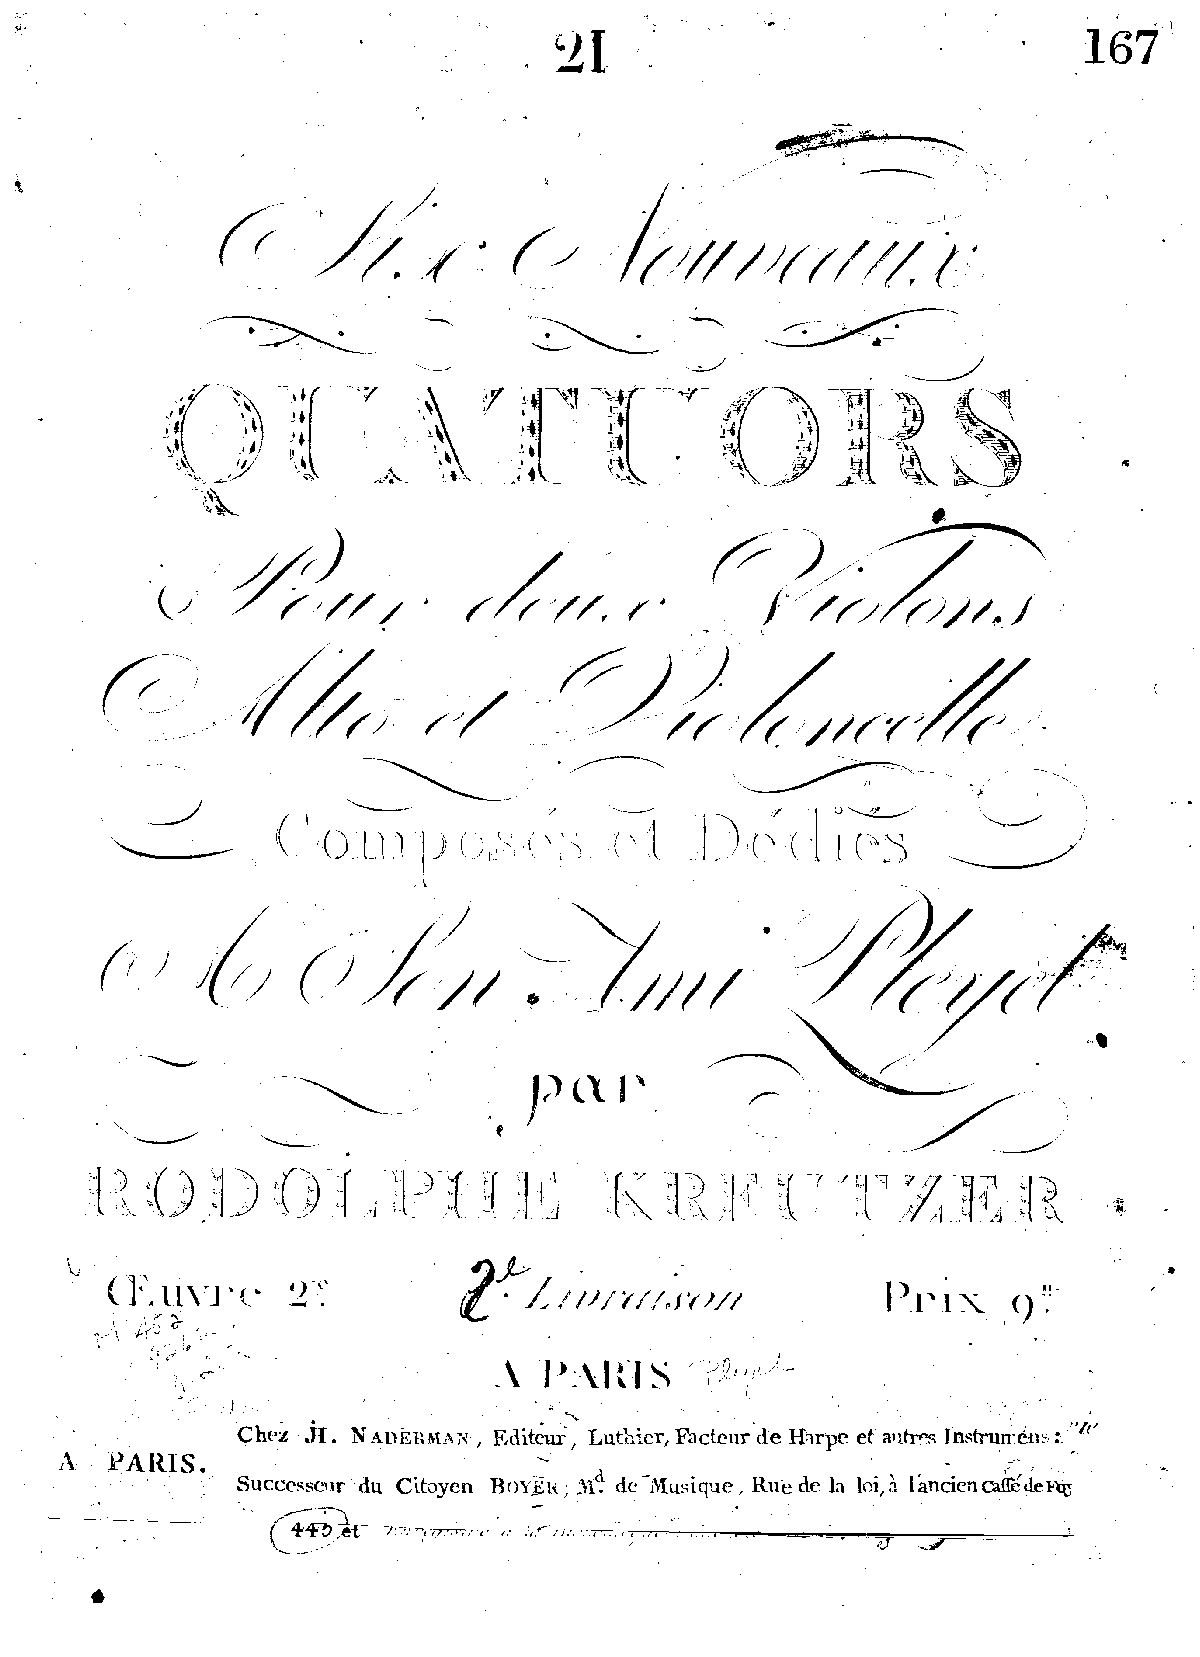 21 167
Six Nouveaux
QUATUORS
Pour deux Violons
Alto et Violoncelle
Composés et Dédiés
A Son Ami Pleyel
par
RODOLPHE KREUTZER
Œuvre 2e. 2e. Livraison Prix 9tt.
A PARIS Pleyel
Chez JH. NADERMAN, Editeur, Luthier, Facteur de Harpe et autres Instruméns:
A PARIS.
Successeur du Citoyen BOYER; Md. de Musique, Rue de la loi, à l'ancien Caffé de Foy
445 et